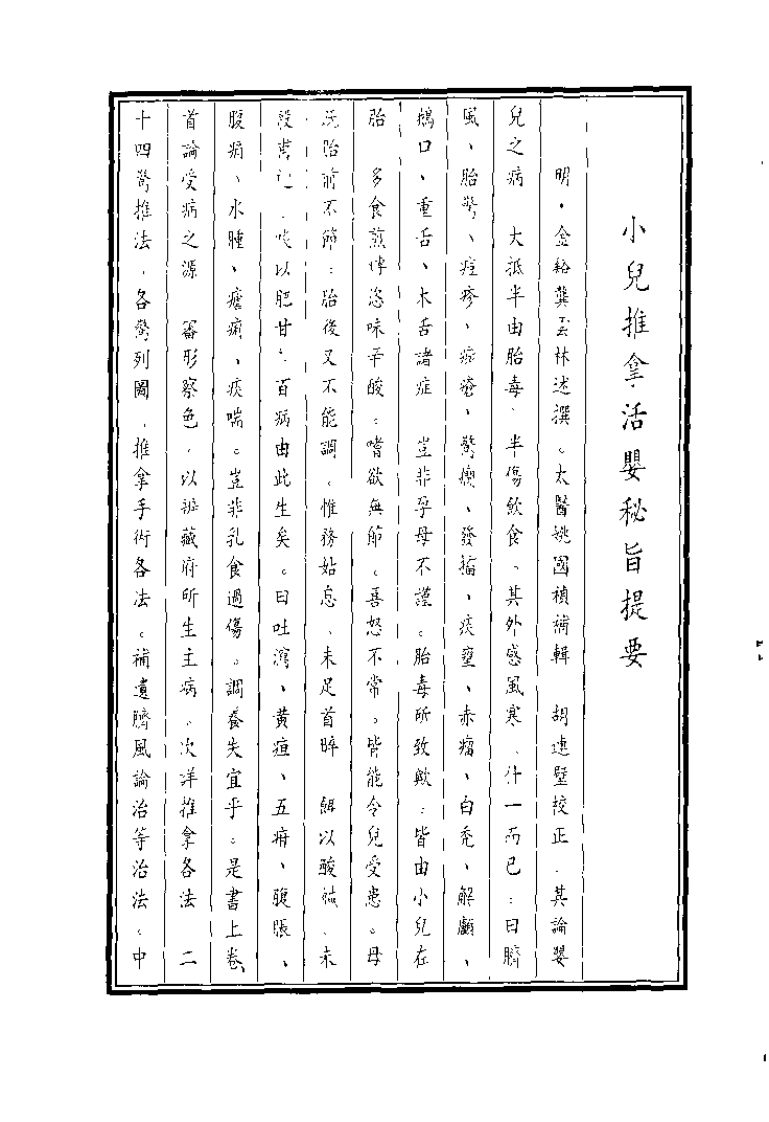 小兒推拿活嬰秘旨提要
明・金谿龔雲林述撰。太醫姚國禎補輯 胡連璧校正．其論嬰
兒之病 大抵半由胎毒．半傷飲食、其外感風寒、什一而已：曰臍
風、胎驚、痘疹、斑瘡、驚癇、發搐、痰壅、赤瘤、白禿、解顱、
鵝口、重舌、木舌諸症 豈非孕母不謹。胎毒所致歟：皆由小兒在
胎 多食煎煿恣味辛酸。嗜欲無節。喜怒不常。皆能令兒受患。母
胎前不節：胎後又不能調．惟務姑息、未足首晬 餌以酸鹹、未
以肥甘．百病由此生矣。曰吐瀉、黃疸、五疳、腹脹、
腹痛、水腫、瘧痢、痰喘。豈非乳食過傷。調養失宜乎。是書上卷、
首論受病之源 審形察色．以辨藏府所生主病。次詳推拿各法 二
十四驚推法．各驚列圖．推拿手術各法。補遺臍風論治等治法。中